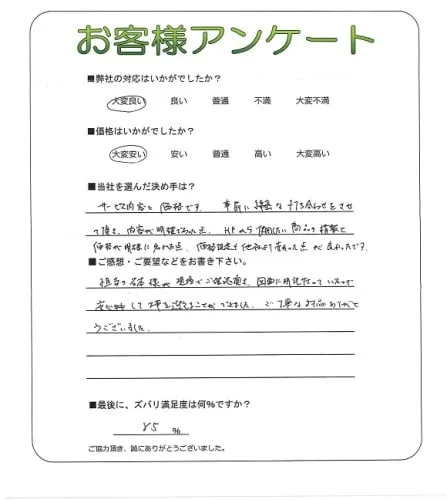 お客様アンケート
■弊社の対応はいかがでしたか？
大変良い 良い 普通 不満 大変不満
■価格はいかがでしたか？
大変安い 安い 普通 高い 大変高い
■当社を選んだ決め手は？
サービス内容と価格です。 事前に綺麗な打ち合わせをさせ
て頂き、内容が明確であった点、HPから
価格が明確に 点、価格設定が他社より安かった点が良かったです。
■ご感想・ご要望などをお書き下さい。
担当の 様が現場でご確認頂き、図面に
安心して 事ができました。ご丁寧な対応ありがと
うございました。
■最後に、ズバリ満足度は何％ですか？
85 ％
ご協力頂き、誠にありがとうございました。